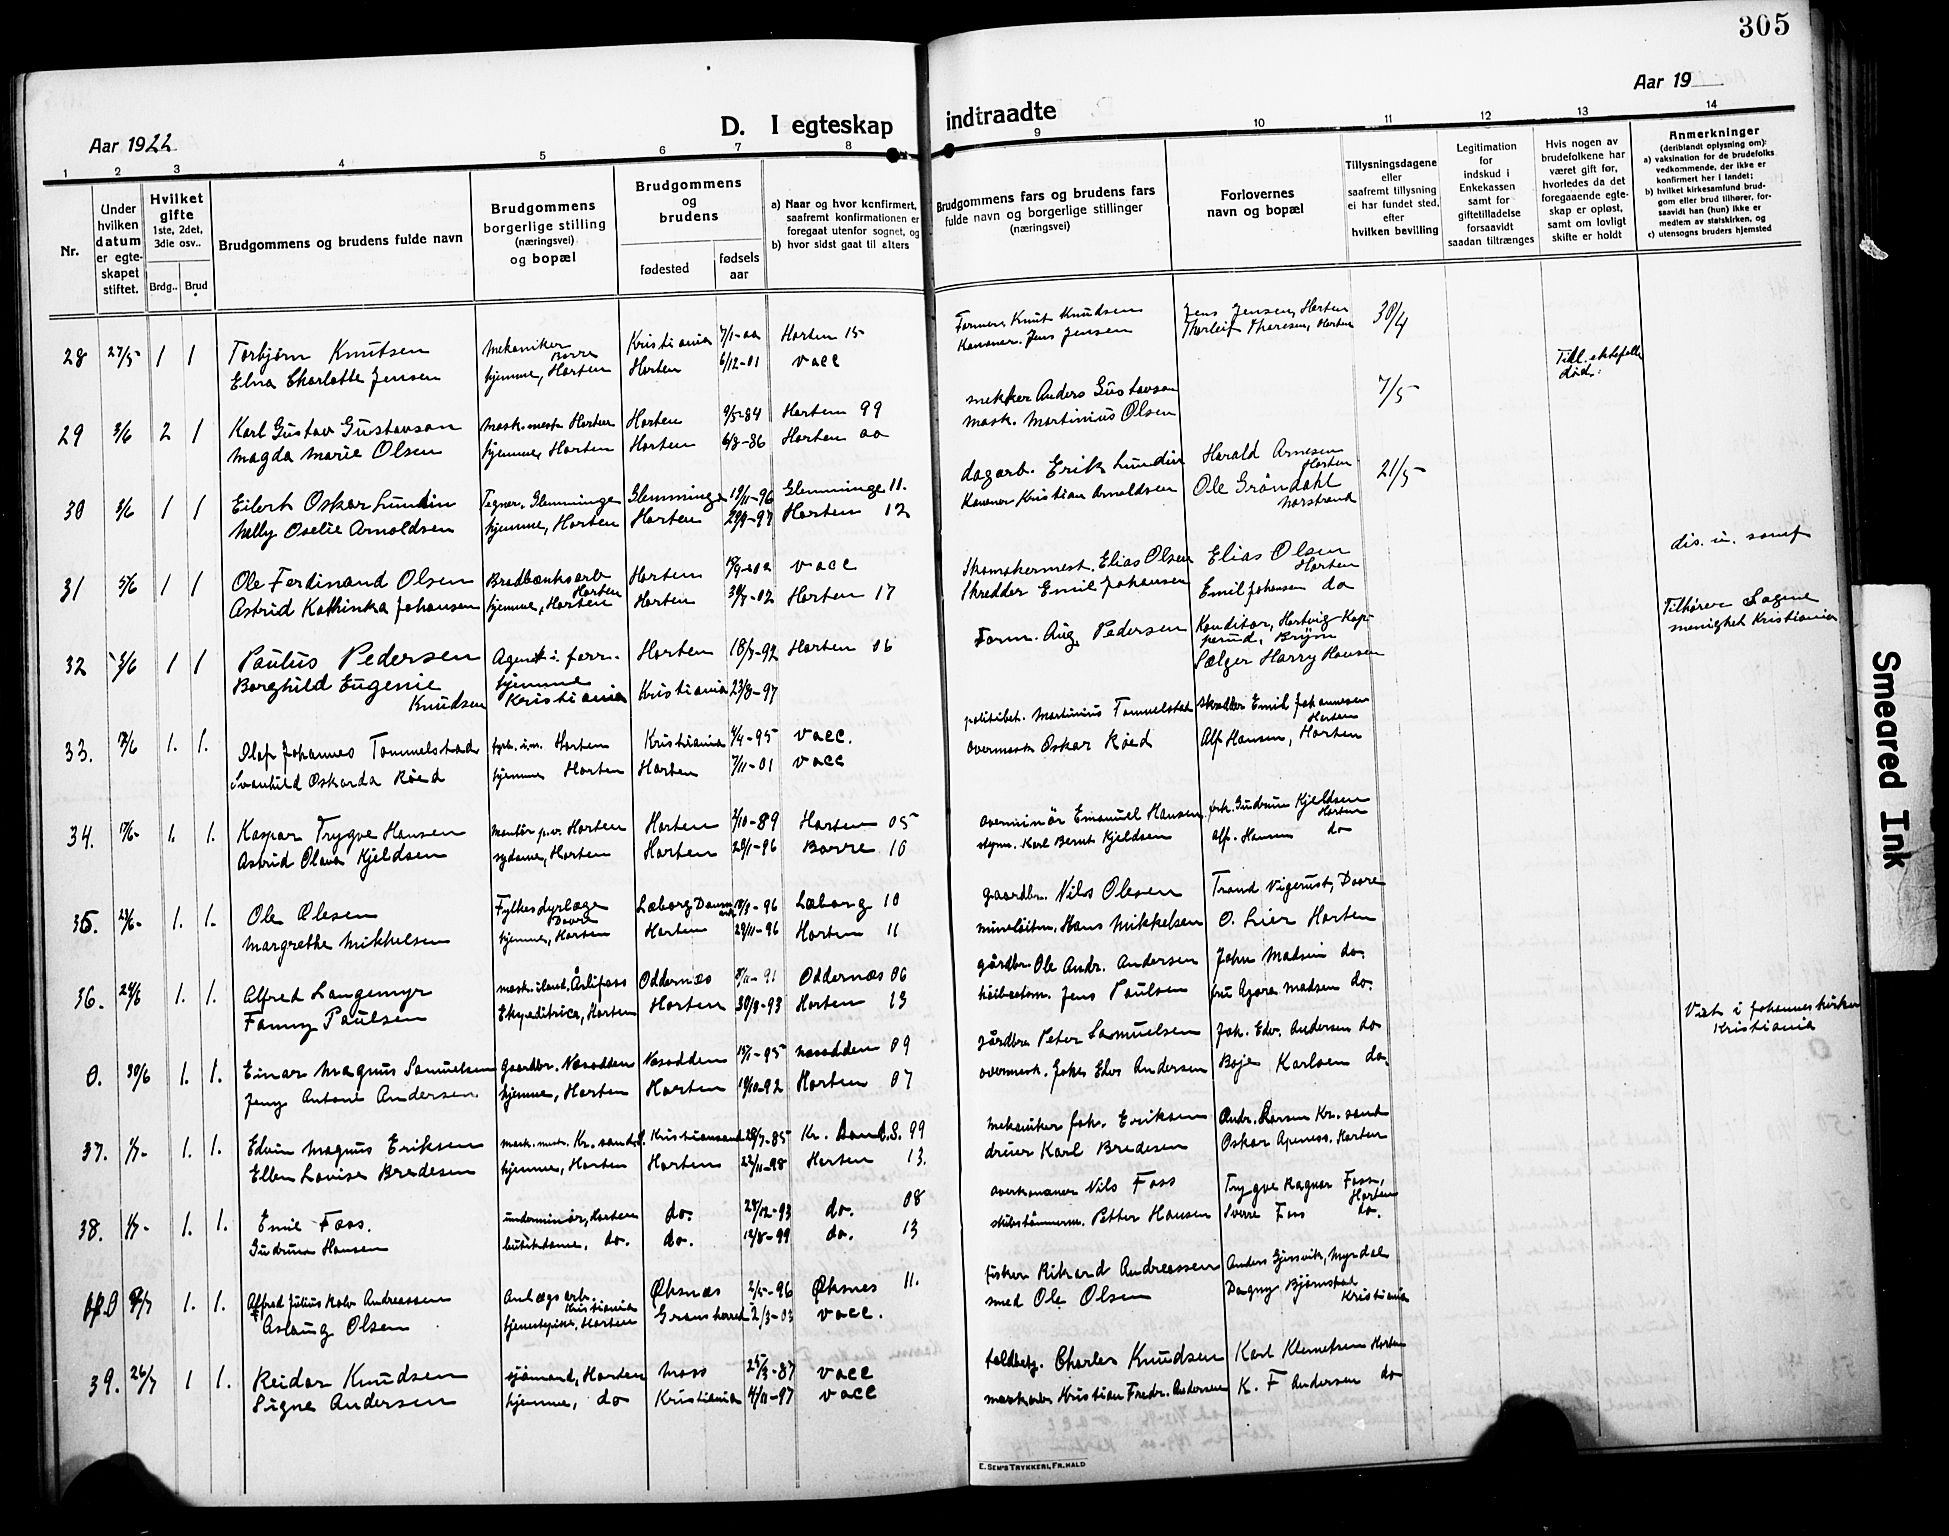 305
Aar 1922
D. I egteskap
indtraadte
Aar 19
1
2
3
4
5
6
7
8
9
10
11
12
13
14
Nr.
Under hvilken datum er egteskapet stiftet.
Hvilket gifte 1ste, 2det, 3die osv..
Brdg..
Brud
Brudgommens og brudens fulde navn
Brudgommens borgerlige stilling (næringsvei) og bopæl
Brudgommens og brudens
fødested
fødsels aar
a) Naar og hvor konfirmert, saafremt konfirmationen er foregaat utenfor sognet, og
b) hvor sidst gaat til alters
Brudgommens fars og brudens fars fulde navn og borgerlige stillinger (næringsvei)
Forlovernes navn og bopæl
Tillysningsdagene eller saafremt tillysning ei har fundet sted, efter hvilken bevilling
Legitimation for indskud i Enkekassen samt for giftetilladelse forsaavidt saadan tiltrænges
Hvis nogen av brudefolkene har været gift før, hvorledes da det foregaaende egteskap er opløst, samt om lovligt skifte er holdt
Anmerkninger (deriblandt oplysning om):
a) vaksination for de brudefolks vedkommende, der ikke er konfirmert her i landet;
b) hvilket kirkesamfund brudgom eller brud tilhører, forsaavidt han (hun) ikke er medlem av statskirken, og
c) utensogns bruders hjemsted
28 27/5 1 1 Torbjørn Knutsen Mekaniker Borre Kristiania 7/1-00 Horten 15 Former Knut Knudsen Jens Jensen, Horten 30/4
Elna Charlotte Jensen hjemme, Horten Horten 6/12-01 vacc Kanoner. Jens Jensen Thorleif Thoresen, Horten
29 3/6 2 1 Karl Gustav Gustavson Mask.mestr Horten Horten 9/5-84 Horten 99 Anders Gustavson 7/5 Tidl. ektefelle død.
Magda Marie Olsen hjemme, Horten Horten 6/8-86 Horten 00 mask. Martinius Olsen
30 3/6 1 1 Eilert Oskar Lundin Tegner, Glemminge Glemminge 19/11-96 Glemminge 11. dagarb. Erik Lundin Harald Arnesen Horten 21/5
Nelly Oselie Arnoldsen hjemme, Horten Horten 29/9-97 Horten 12 Kanoner Kristian Arnoldsen Ole Gröndahl Norstrand
31 5/6 1 1 Ole Ferdinand Olsen Horten Horten vacc Skomakermest. Elias Olsen Elias Olsen Horten dis. u. samf
Astrid Kathinka Johansen hjemme, Horten Horten 02 Horten 17 Skredder Emil Johansen Emil Johansen do
32 3/6 1 1 Paulus Pedersen Agent i forr. Horten 18/3-92 Horten 06 Form. Aug. Pedersen Konditor, Hartvig Kopperud, Bryn Tilhører Sagene menighet Kristiania
Borghild Eugenie Knudsen hjemme Kristiania Kristiania 23/8-97 Sælger Harry Hansen
33. 1. 1. Olaf Johannes Tommelstad Horten Kristiania 4/4-95 vacc. politibet. Martinius Tommelstad Skredder Emil Johannesen Horten
Svanhild Oskarda Röed hjemme Horten Horten 7/11-01 vacc Overmask Oskar Röed Alf Hansen, Horten
34. 17/6- 1. 1. Kaspar Trygve Hansen Montör p.v. Horten Horten 2/10-89 Horten 05 overminör Emanuel Hansen frk. Gudrun Kjeldsen Horten
Astrid Olava Kjeldsen sydame, Horten Horten 28/1-96 Borre 10 styrm. Karl Bernt Kjeldsen Alf. Hansen do
35. 23/6- 1. 1. Ole Olesen Fylkesdyrlæge Dovre Læborg Danmark 96 Læborg 10 gaardbr. Nils Olesen Trond Vigerust, Dovre
Margrethe Mikkelsen hjemme, Horten Horten 29/11-96 Horten 11 mineløitn. Hans Mikkelsen O. Lier Horten
36. 24/6 1. 1. Alfred Langemyr Oddernæs 91 Oddernæs 06 gårdbr. Ole Andr. Andersen John Madsen do.
Fanny Paulsen Ekspeditrice, Horten Horten 30/8-93 Horten 13 Jens Paulsen fru Agnes Madsen do. Viet i Johannes kirken Kristiania
0. 30/6 1. 1. Einar Magnus Samuelsen Gaardbr. Næsodden Næsodden 95 Næsodden 09 gårdbr. Peter Samuelsen Joh. Edv. Andersen do
Jenny Antoni Andersen hjemme, Horten Horten 19/10-92 Horten 07 overmask. Johs Edv. Andersen Borje Karlsen do.
37. 1/7- 1. 1. Edvin Magnus Eriksen mask.mestr. Kr.sand S. Kristiansand 28/7-85 Kr. sand. S. 99 mekaniker Joh. Eriksen Andr. Larsen Kr. sand
Ellen Lovise Bredesen hjemme, Horten Horten 22/11-98 Horten 13. dreier Karl Bredesen Oskar Apenæs, Horten
38. 1/7- 1. 1. Emil Foss. underminör, Horten do. 28/12-93 do. 08 overkanoner Nils Foss Trygve Ragnar Foss, Horten
Gudrun Hansen butikdame, do. do. 12/8-99 do. 13 skibstömmerm. Petter Hansen Sverre Foss do.
0 1. 1. Alfred Julius Kolv Andreassen Anlægsarb. Kristiania Øksnæs 2/5-96 Øksnes 11. fisker Rikard Andreassen Anders Gjersvik, Myrdal
Aslaug Olsen tjenestepike, Horten Gransherred 2/3-03 vacc. smed Ole Olsen Dagny Bjørnstad Kristiania
39. 26/7 1 1. Reidar Knudsen sjömand, Horten Moss 25/3-87 vacc toldbetj. Charles Knudsen Karl Klemetsen Horten
Signe Andersen hjemme, do Kristiania 4/11-97 vacc Kristian Fredr. Andersen K. F Andersen do
E. Sem's Trykkeri, Fr.hald
Smeared Ink